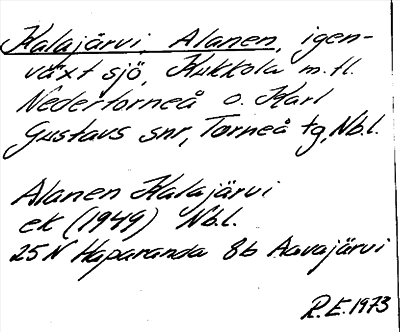 Kalajärvi, Alanen, igen-
växt sjö, Kukkola m.fl.
Nedertorneå o. Karl
Gustavs snr, Torneå tg, Nb.l.
Alanen Kalajärvi
ek (1949) Nb.l.
25 N Haparanda 8b Aavajärvi
R.E. 1973